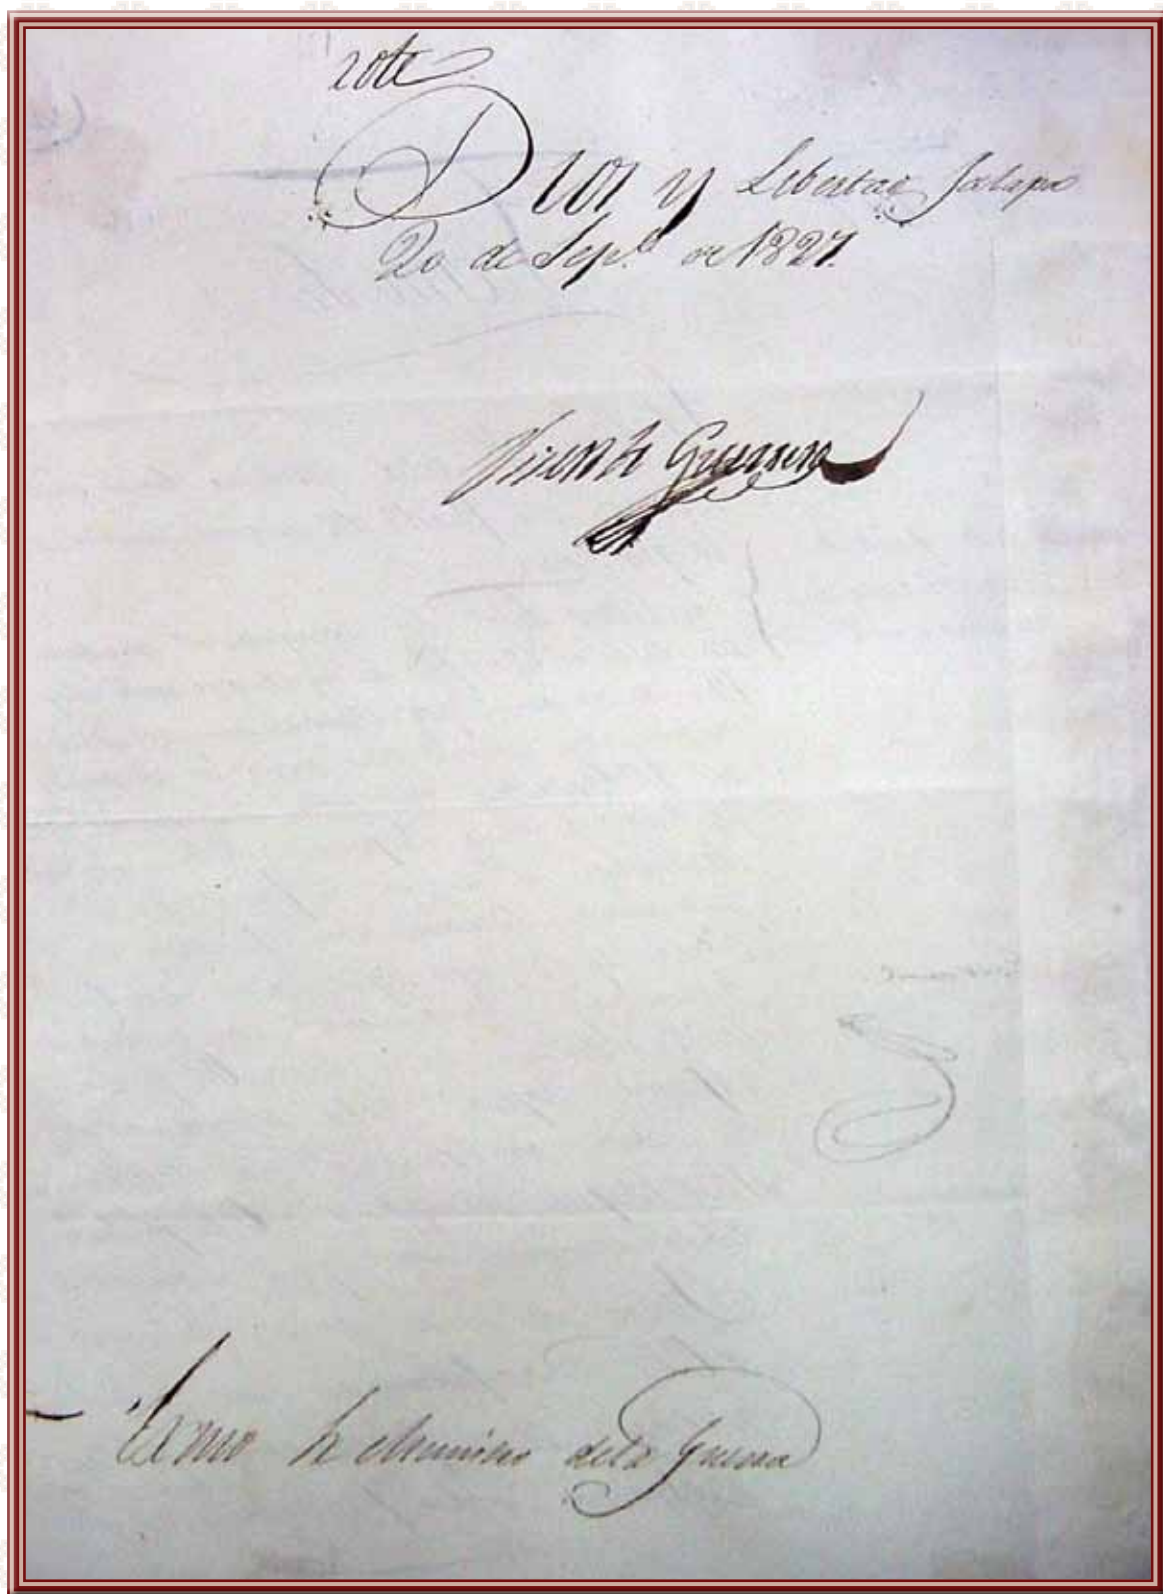 rote
Dios y Libertad Jalapa
20 de Sepe. de 1827.
Vicente Guerrero
Exmo Sr Ministro de la Guerra